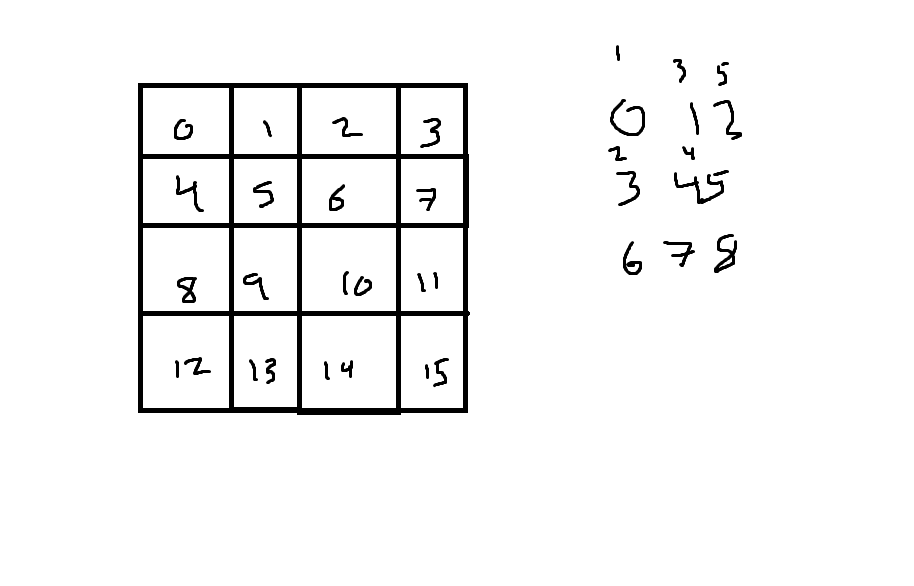 0 1 2 3
4 5 6 7
8 9 10 11
12 13 14 15
1
3 5
0 1 2
2 4
3 4 5
6 7 8